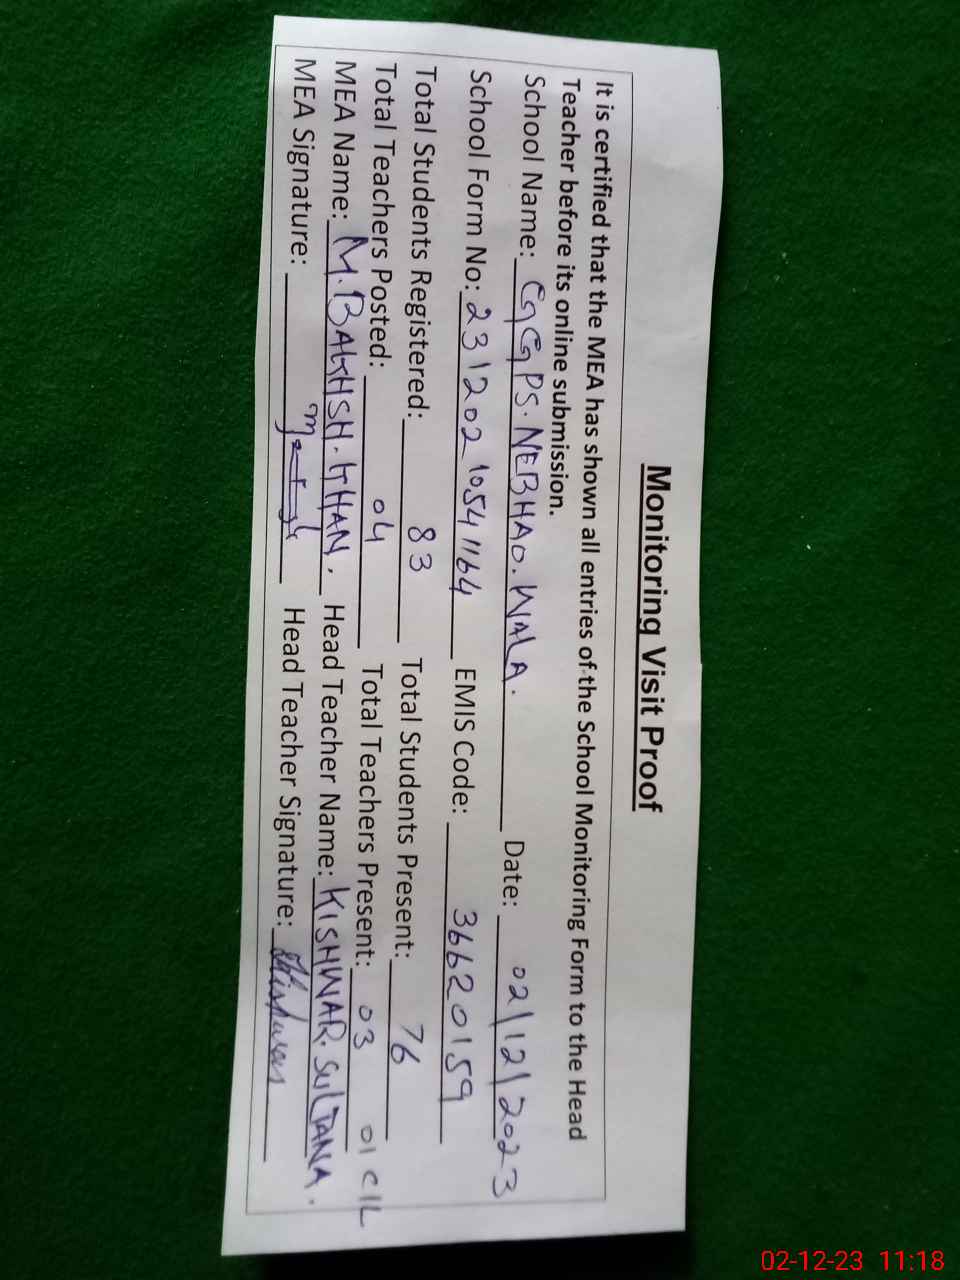 Monitoring Visit Proof
It is certified that the MEA has shown all entries of the School Monitoring Form to the Head
Teacher before its online submission.
School Name: GGPS. NEBHAO. WALA. Date: 02/12/2023
School Form No: 231202 1054 1164 EMIS Code: 36620159
Total Students Registered: 83 Total Students Present: 76
Total Teachers Posted: 04 Total Teachers Present: 03 01 C/L
MEA Name: M. BAKHSH. KHAN. Head Teacher Name: KISHWAR. SULTANA.
MEA Signature: Head Teacher Signature: Kishwar
02-12-23 11:18